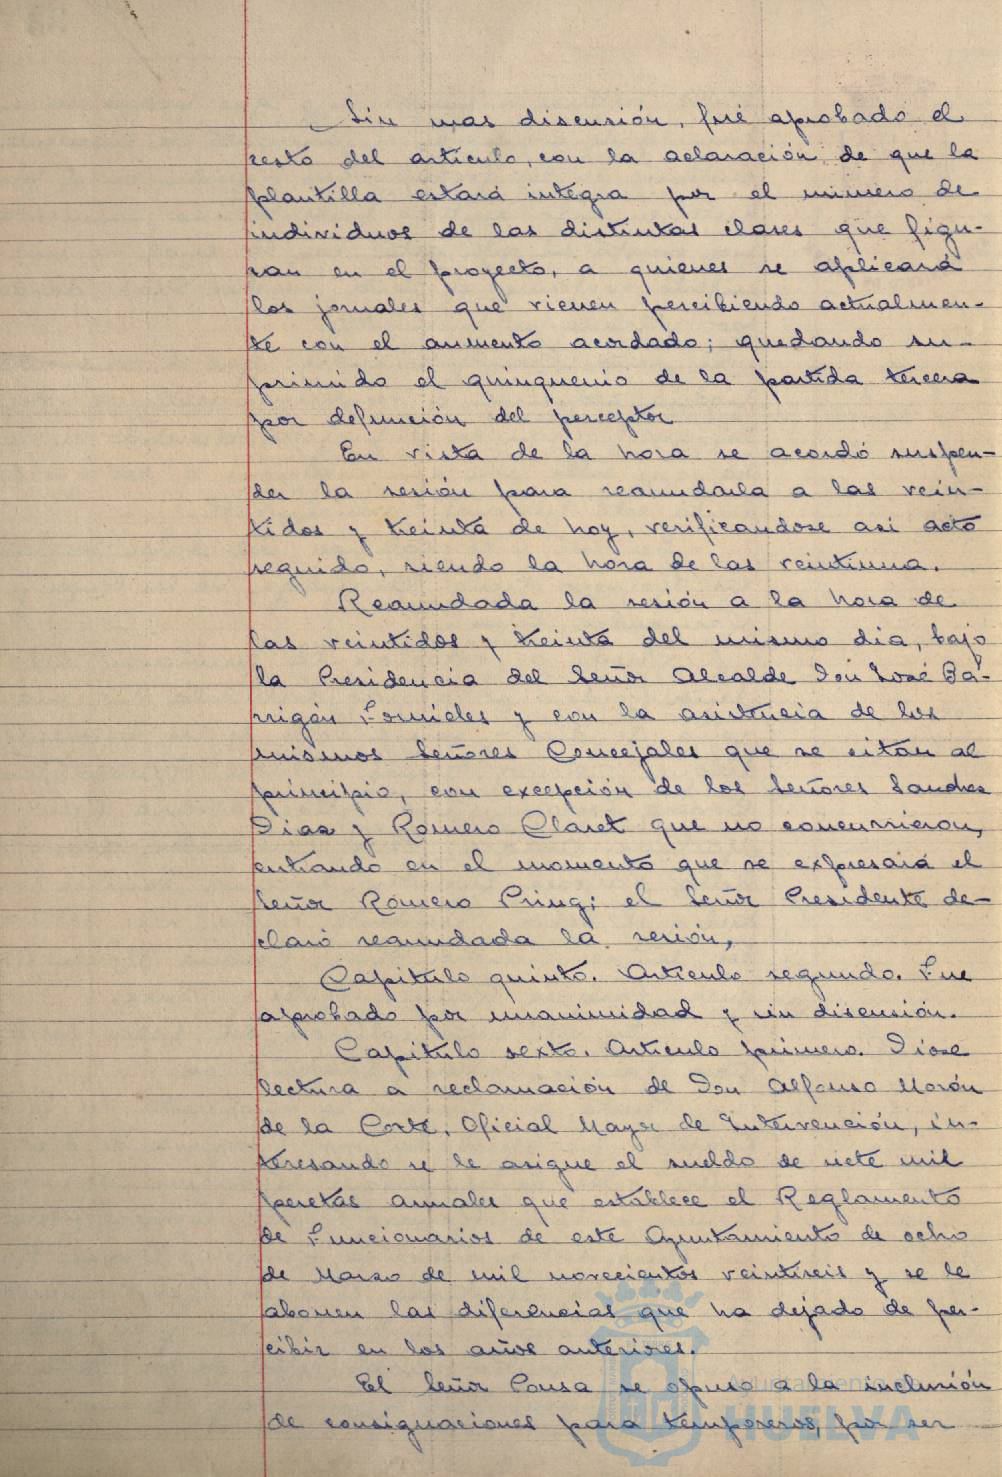 Sin mas discusión, fué aprobado el
resto del articulo, con la aclaración de que la
plantilla estará integra por el número de
individuos de las distintas clases que figu-
ran en el proyecto, a quienes se aplicará
los jornales que vienen percibiendo actualmen-
te con el aumento acordado; quedando su-
primido el quinquenio de la partida tercera
por defunción del perceptor
En vista de la hora se acordó suspen-
der la sesión para reanudarla a las vein-
tidos y treinta de hoy, verificandose asi acto
seguido, siendo la hora de las veintiuna.
Reanudada la sesión a la hora de
las veintidos y treinta del mismo dia, bajo
la Presidencia del Señor Alcalde Don José Ba-
rrigón Fornieles y con la asistencia de los
mismos Señores Concejales que se citan al
principio, con excepción de los Señores Sanchez
Diaz y Romero Claret que no concurrieron,
entrando en el momento que se expresará el
Señor Romero Pring; el Señor Presidente de-
claró reanudada la sesión,
Capitulo quinto. Articulo segundo. Fue
aprobado por unanimidad y sin discusión.
Capitulo sexto. Articulo primero. Diose
lectura a reclamación de Don Alfonso Morón
de la Corte, Oficial Mayor de Intervención, in-
teresando se le asigne el sueldo de siete mil
pesetas anuales que establece el Reglamento
de Funcionarios de este Ayuntamiento de ocho
de Marzo de mil novecientos veintiseis y se le
abonen las diferencias que ha dejado de per-
cibir en los años anteriores.
El Señor Pousa se opuso a la inclusión
de consignaciones para temporeros, por ser
Ayuntamiento de
HUELVA